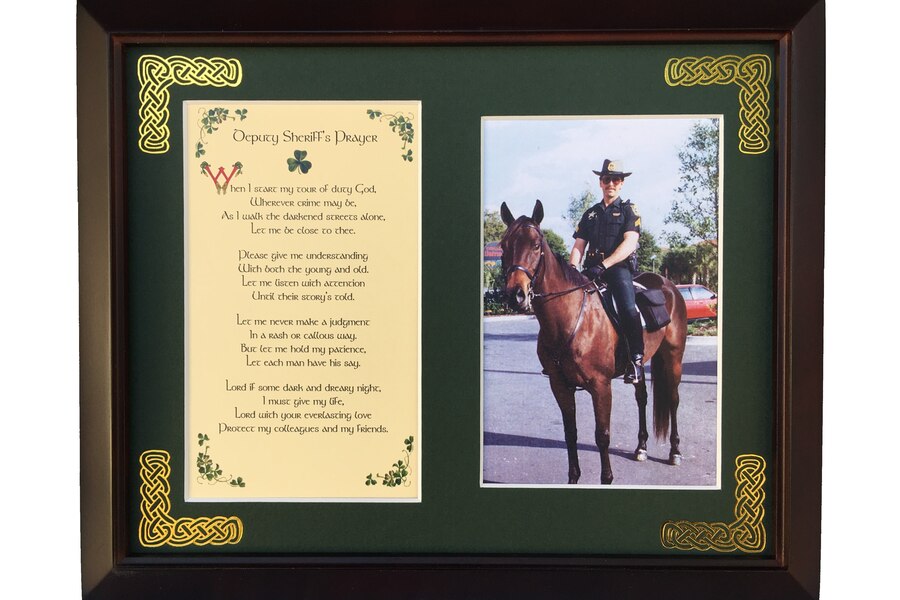 Deputy Sheriff's Prayer
When I start my tour of duty God,
Wherever crime may be,
As I walk the darkened streets alone,
Let me be close to thee.
Please give me understanding
With both the young and old.
Let me listen with attention
Until their story's told.
Let me never make a judgment
In a rash or callous way.
But let me hold my patience,
Let each man have his say.
Lord if some dark and dreary night,
I must give my life,
Lord with your everlasting love
Protect my colleagues and my friends.